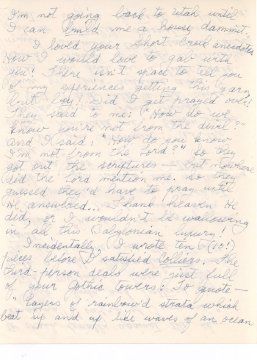 I'm not going back to Utah until
I can build me a house, dammit.
I loved your short, brief anecdotes
How I would love to gab with
you! There isn't space to tell you
of my experiences getting this yarn,
but boy! Did I get prayed over!
They said to me: "How do we
know you're not from the devil?"
and I said: "How do you know
I'm not from the Lord?" So they
got out the scriptures — but nowhere
did the Lord mention me. So they
guessed they'd have to pray until
He answered... Thank heaven He
did, or I wouldn't be wallowing
in all this Babylonian luxury!
Incidentally, I wrote ten (10!)
pieces before I satisfied Colliers. The
third-person deals were just full
of your Gothic towers: To quote —
"Layers of rainbow'd strata which
beat up and up like waves of an ocean